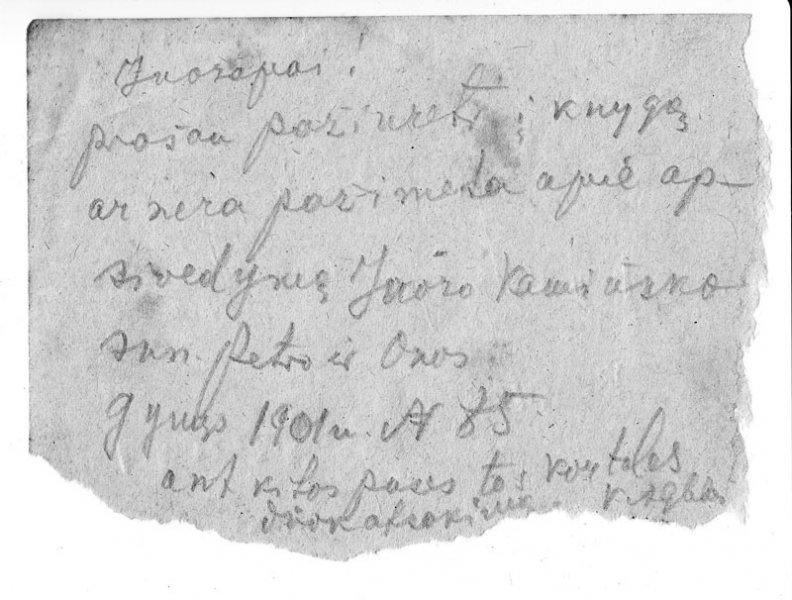 Juozapai!
prošau pažiureti į knygą
ar nėra pažimeta apie ap-
sivedymą Juozo Kaminsko
sun. Petro ir Onos
gymęs 1901 m. N 85
ant kitos puses tos korteles
duok atsakimą